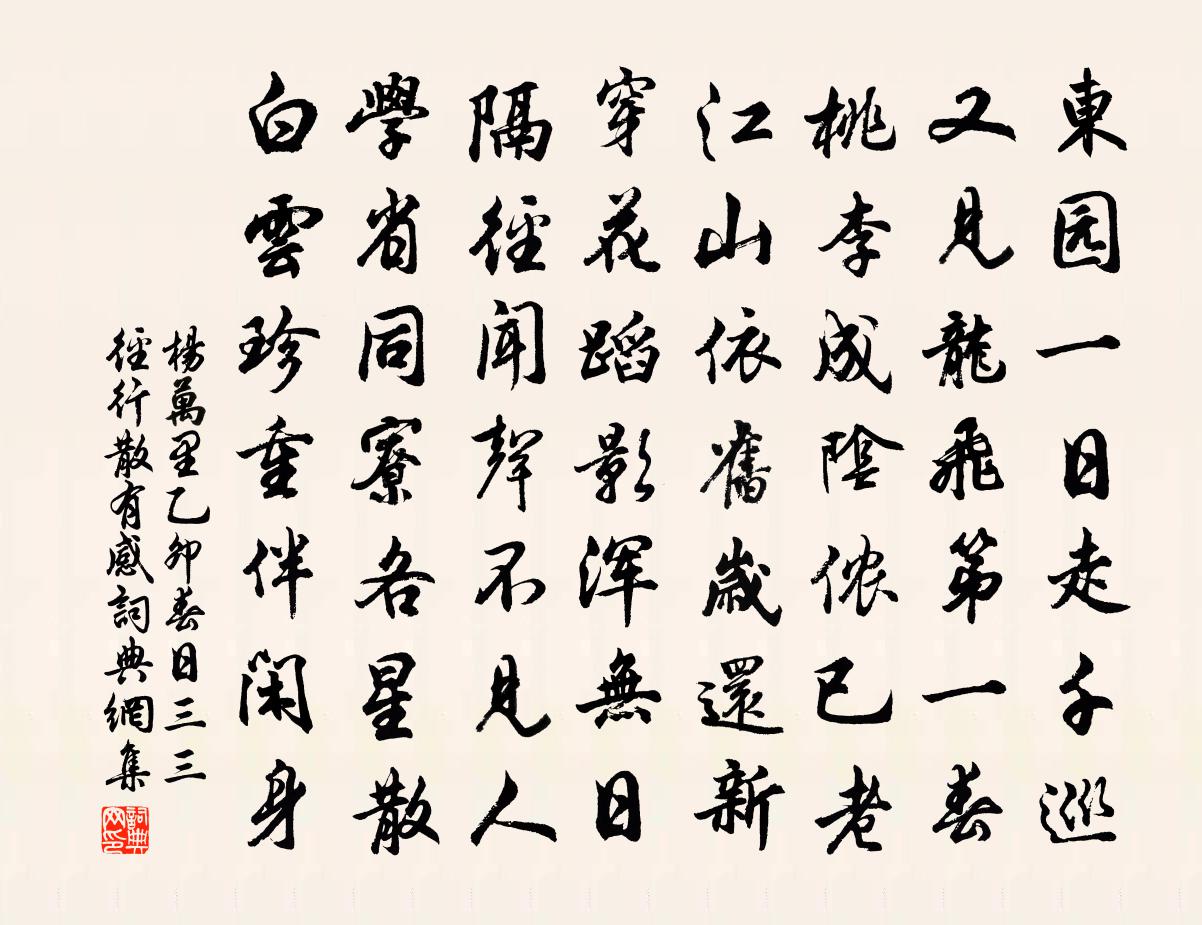 東园一日走千巡
又見龍飛第一春
桃李成陰侬已老
江山依舊歲還新
穿花蹈影渾無日
隔徑聞聲不見人
學省同寮各星散
白雲珍重伴閑身
楊萬里乙卯春日三三
徑行散有感詞典網集
詞典
网印